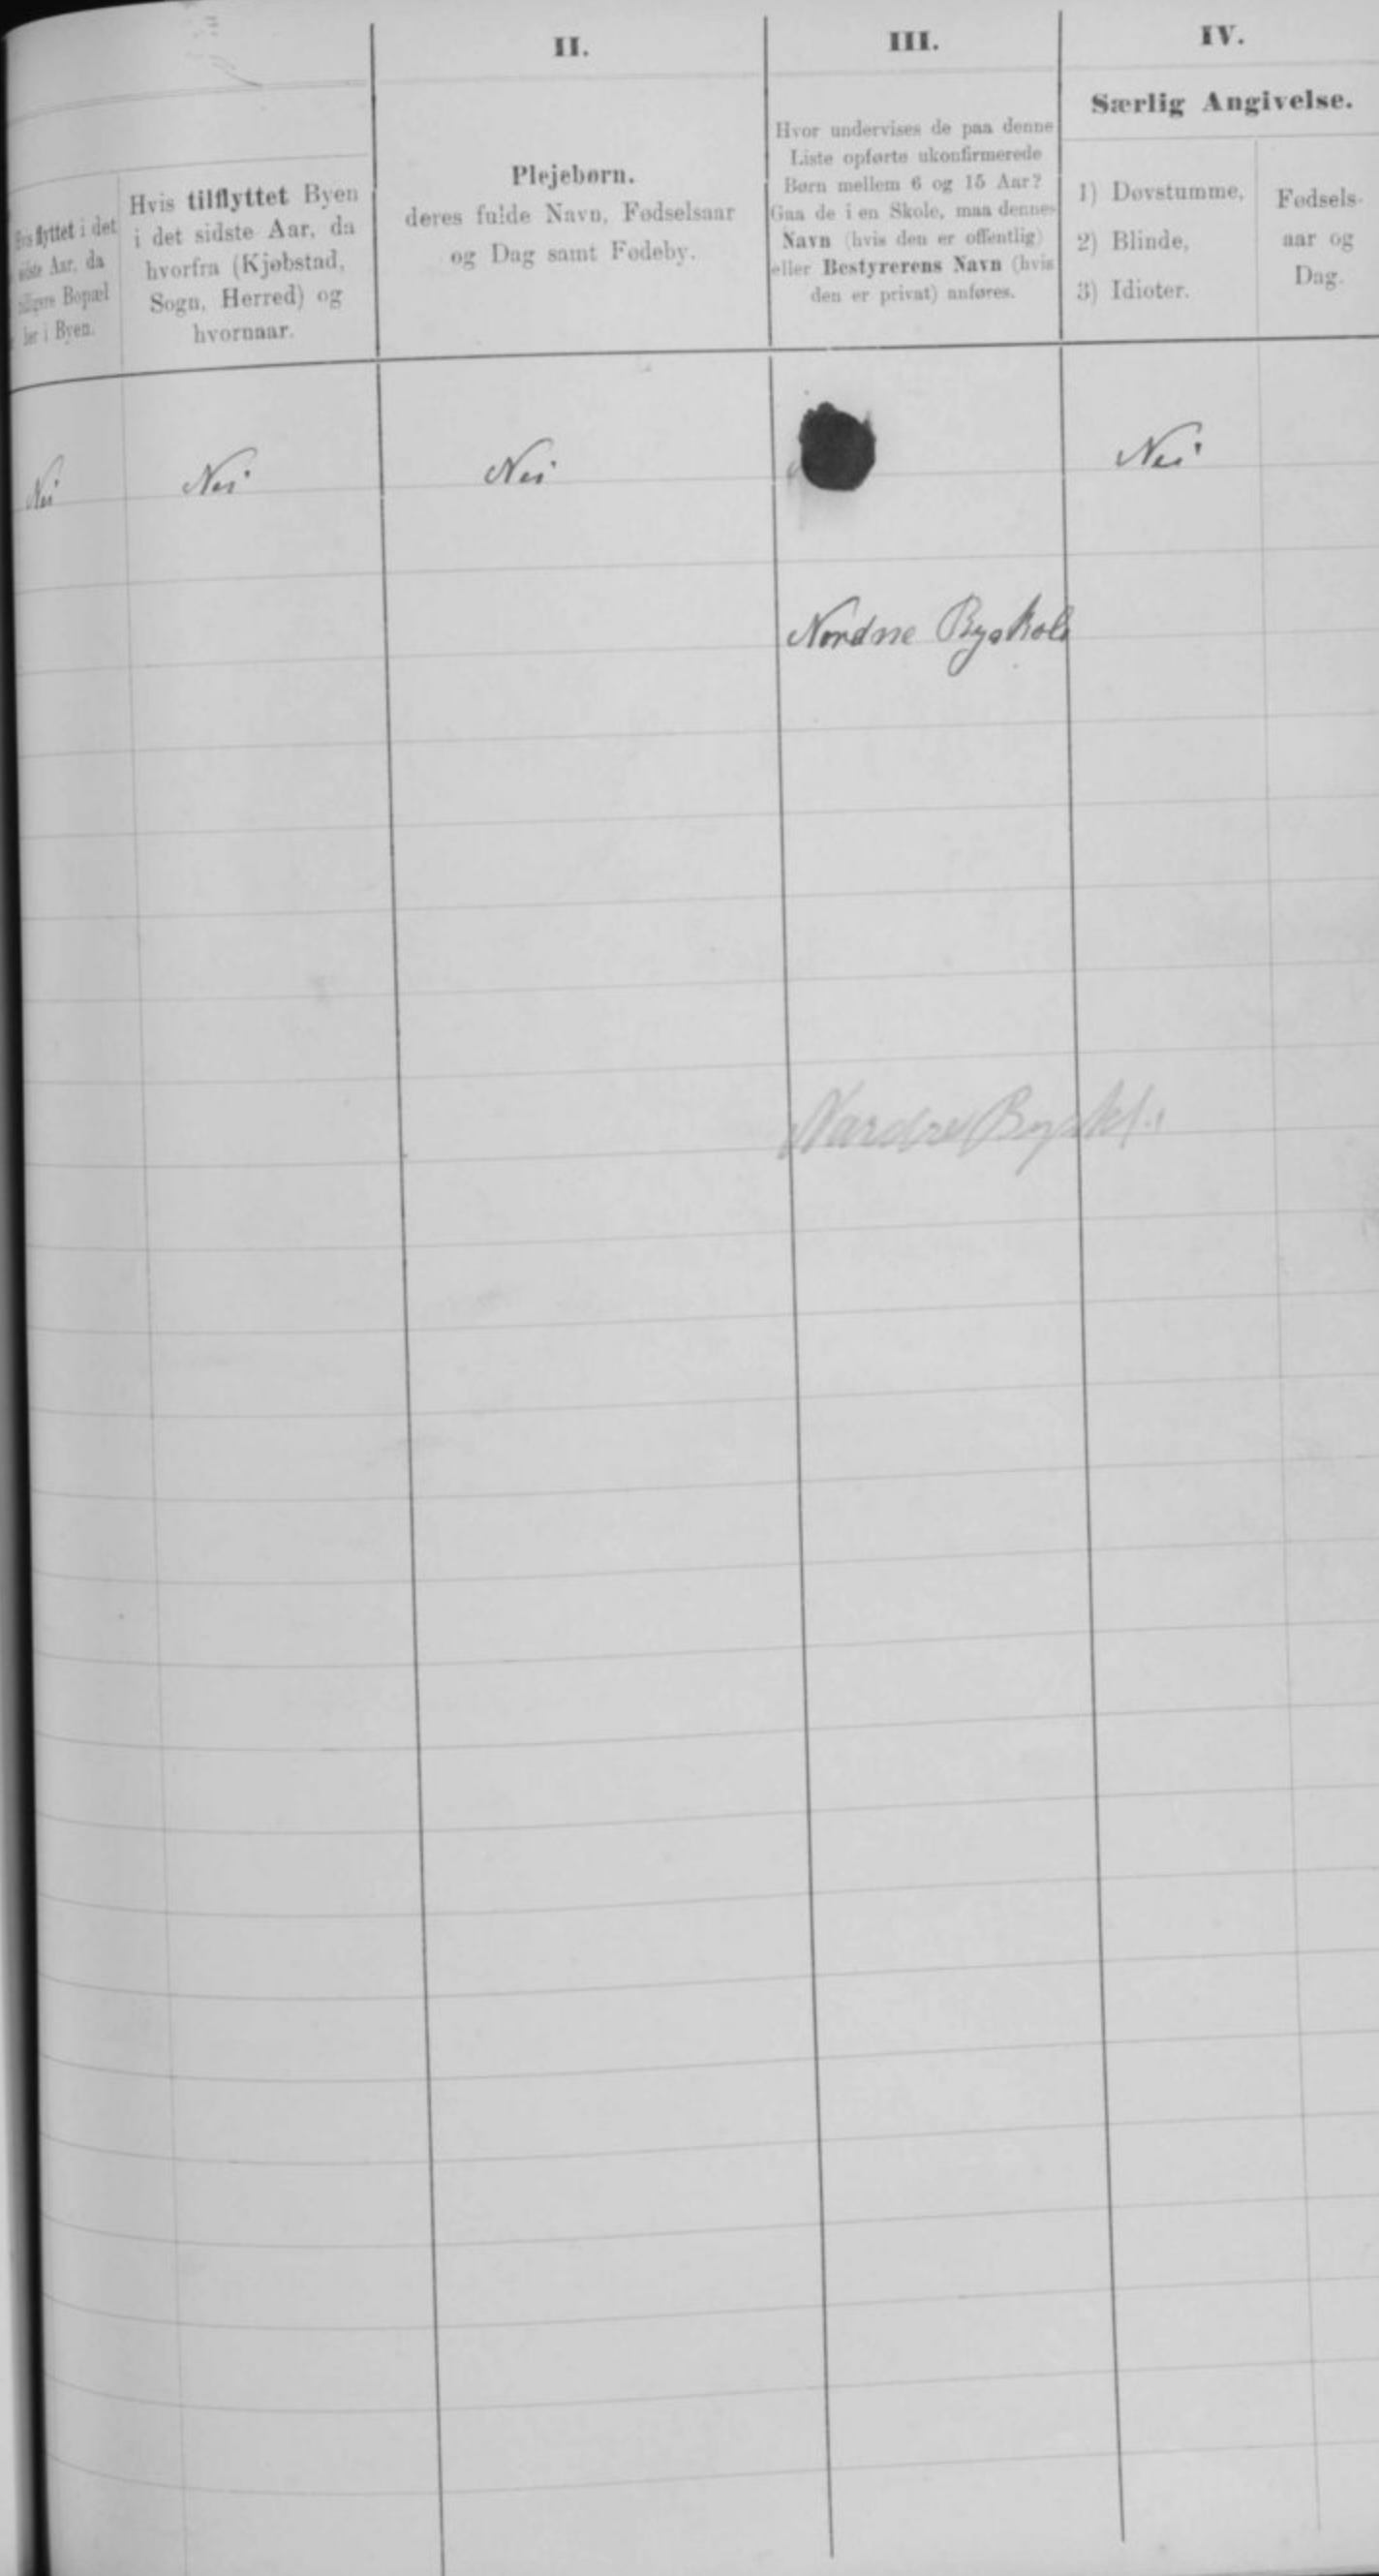 II.
III.
IV.
Særlig Angivelse.
flyttet i det
sidste Aar, da
tidligere Bopæl
her i Byen.
Hvis tilflyttet Byen
i det sidste Aar, da
hvorfra (Kjøbstad,
Sogn, Herred) og
hvornaar.
Plejebørn.
deres fulde Navn, Fødselsaar
og Dag samt Fødeby.
Hvor undervises de paa denne
Liste opførte ukonfirmerede
Børn mellem 6 og 15 Aar?
Gaa de i en Skole, maa dennes
Navn (hvis den er offentlig)
eller Bestyrerens Navn (hvis
den er privat) anføres.
1) Døvstumme,
2) Blinde,
3) Idioter.
Fødsels-
aar og
Dag.
Nei Nei Nei Nei
Nordne Byskole
Nordre Byskl.